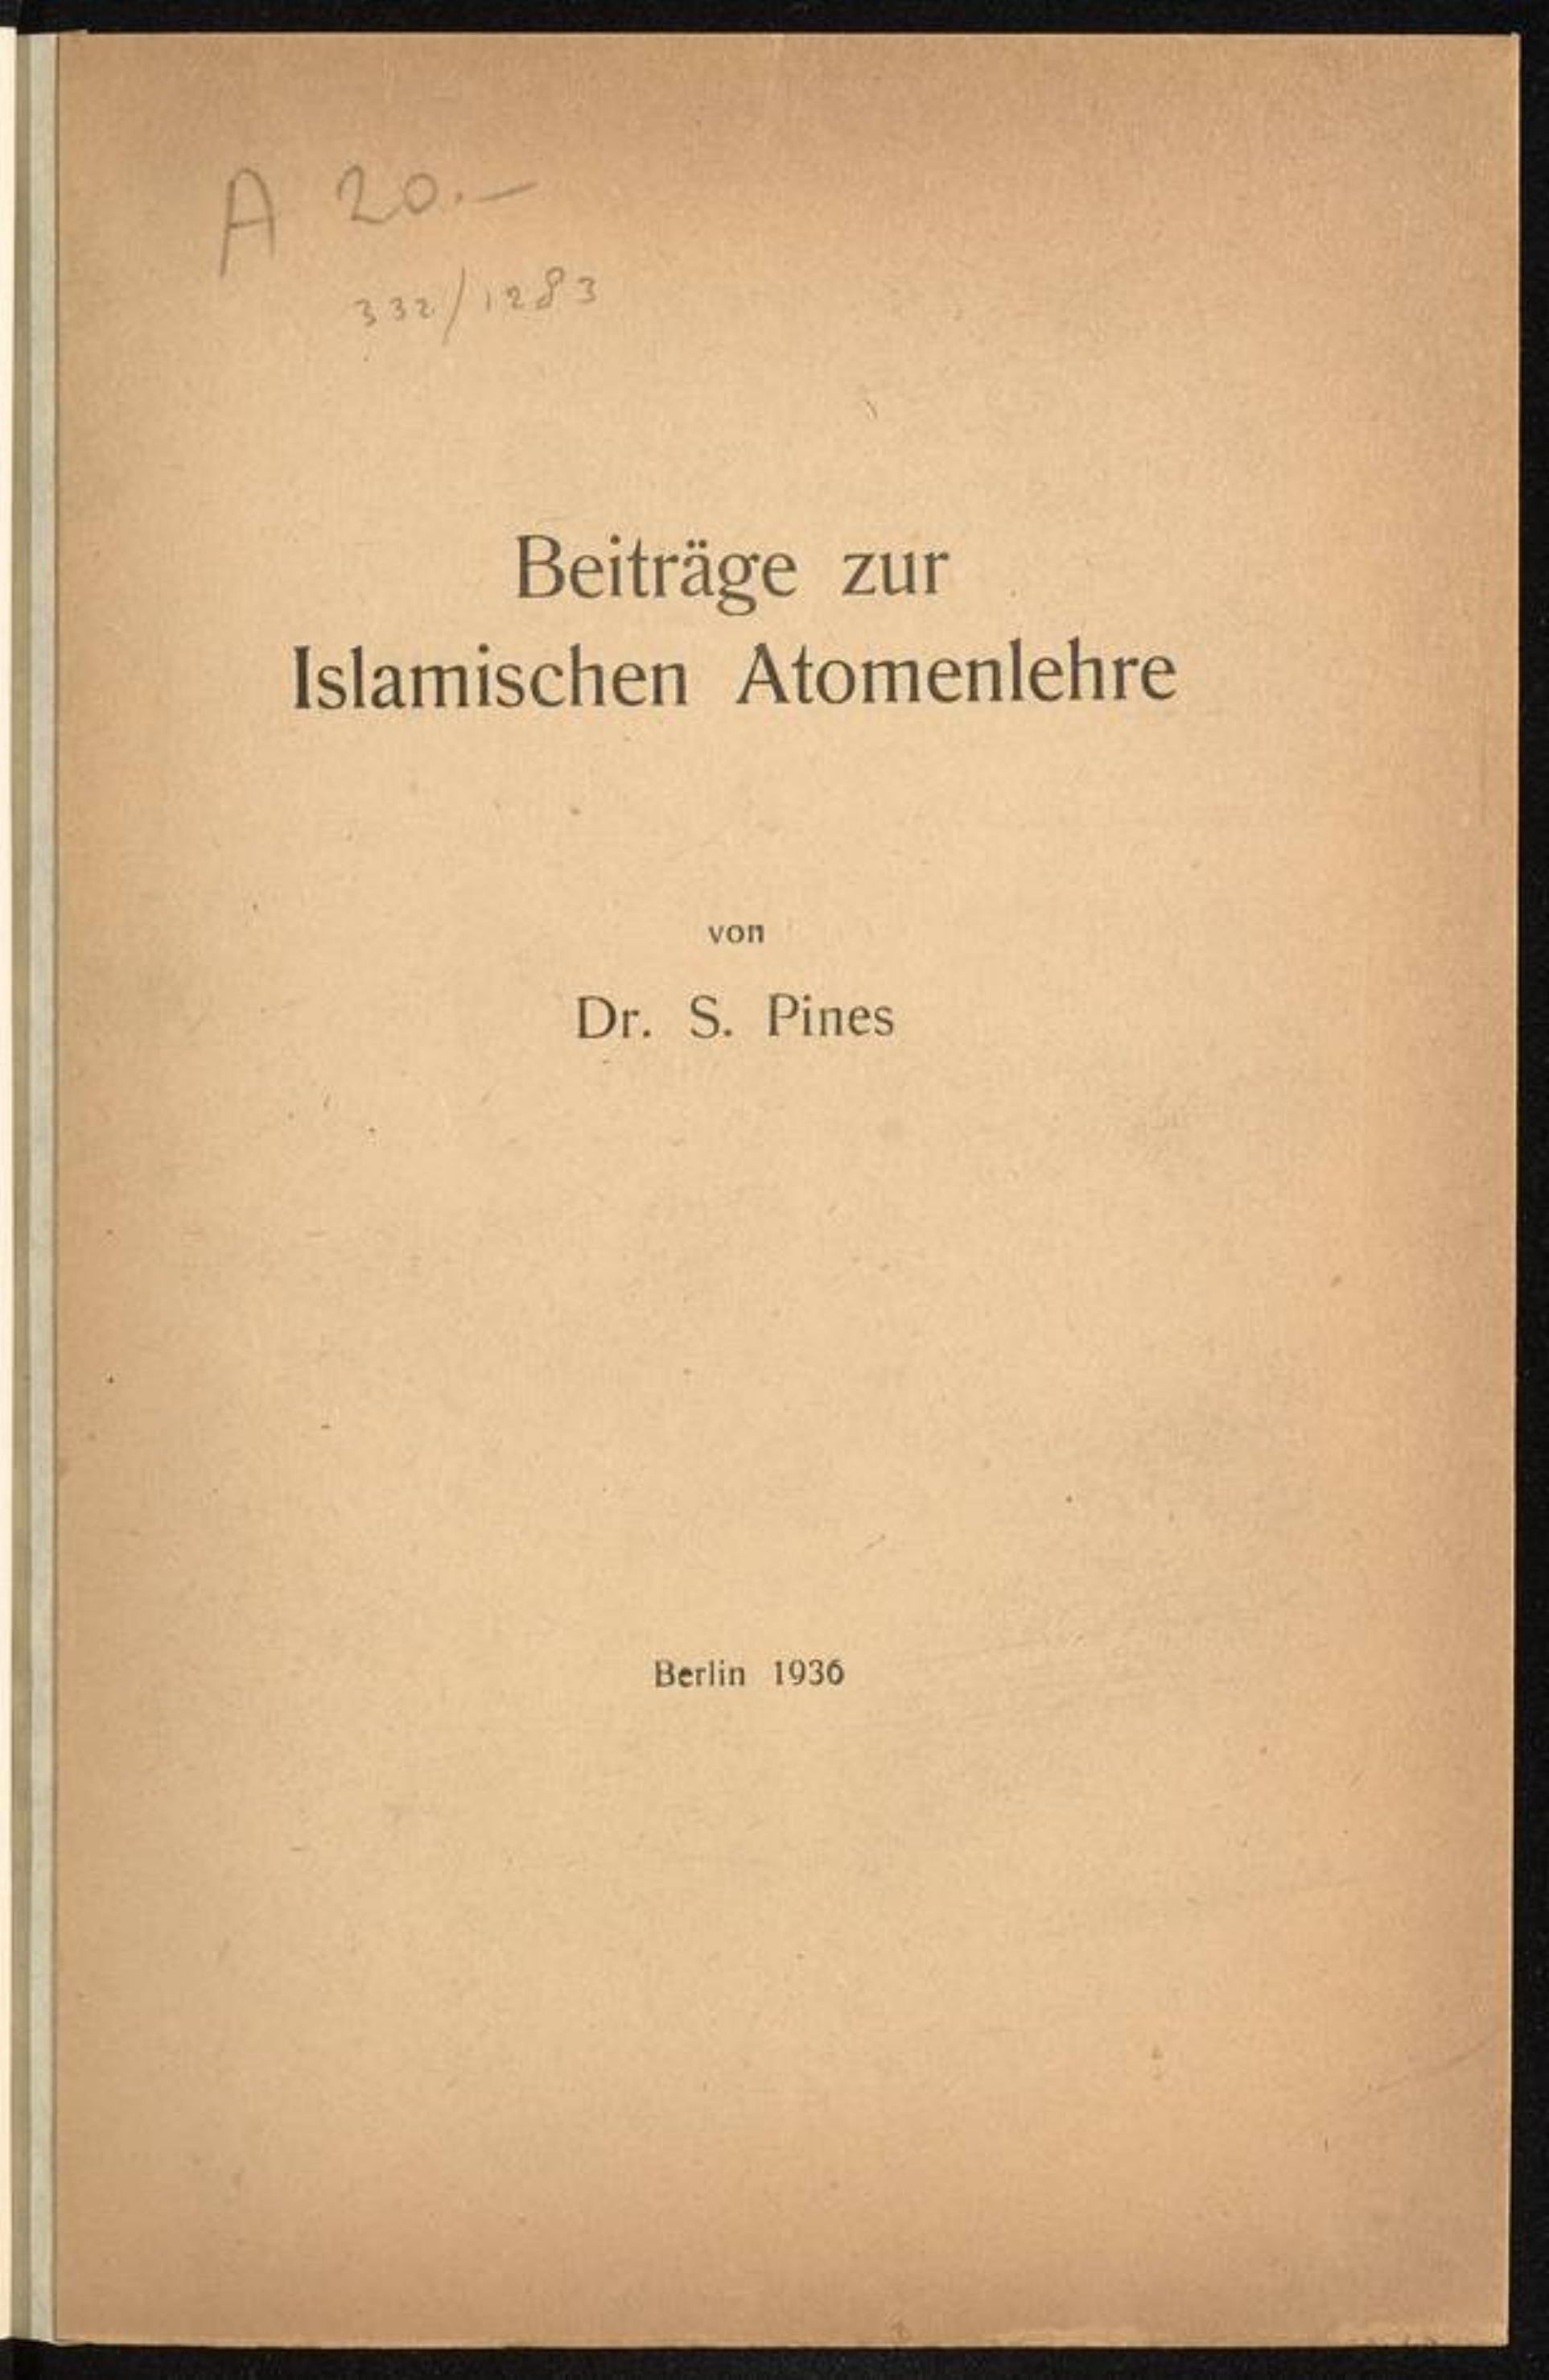 A 20.-
332/1283
Beiträge zur
Islamischen Atomenlehre
von
Dr. S. Pines
Berlin 1936